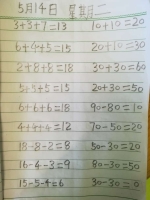 5月14日 星期二
3+3+7=13 10+10=20
6+4+5=15 20+10=30
2+8+8=18 30+30=60
5+5+5=15 20+30=50
6+6+6=18 90-80=10
4+4+4=12 70-50=20
18-8-2=8 50-30=20
16-4-3=9 80-30=50
15-5-4=6 30-30=0